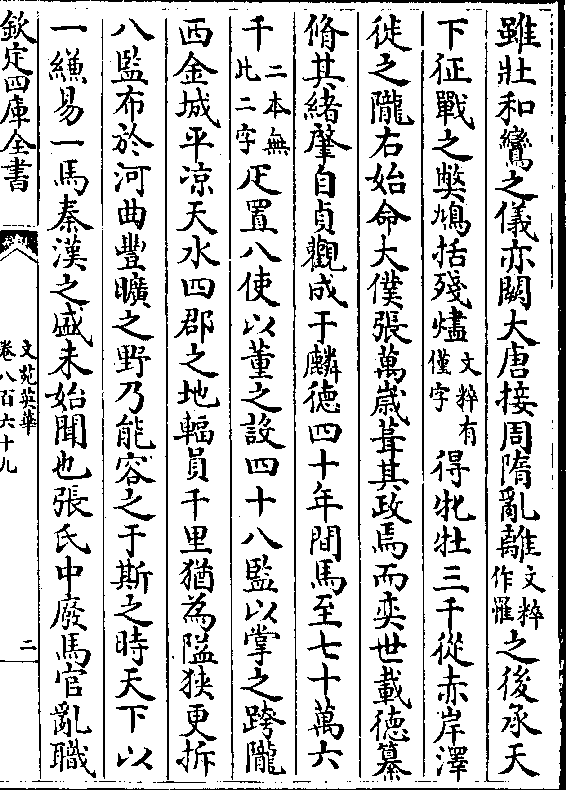 雖壯和鸞之儀亦闕大唐接周隋亂離文粹作罹之後承天
下征戰之獘鳩括殘燼文粹有僅字得牝牡三千從赤岸澤
徙之隴右始命大僕張萬歲葺其政焉而奕世載德纂
脩其緒肇自貞觀成于麟德四十年間馬至七十萬六
千二本無此二字疋置八使以董之設四十八監以掌之跨隴
西金城平涼天水四郡之地輻員千里猶為隘狹更拆
八監布於河曲豐曠之野乃能容之于斯之時天下以
一縑易一馬秦漢之盛未始聞也張氏中廢馬官亂職
欽定四庫全書
文苑英華
卷八百六十九
二